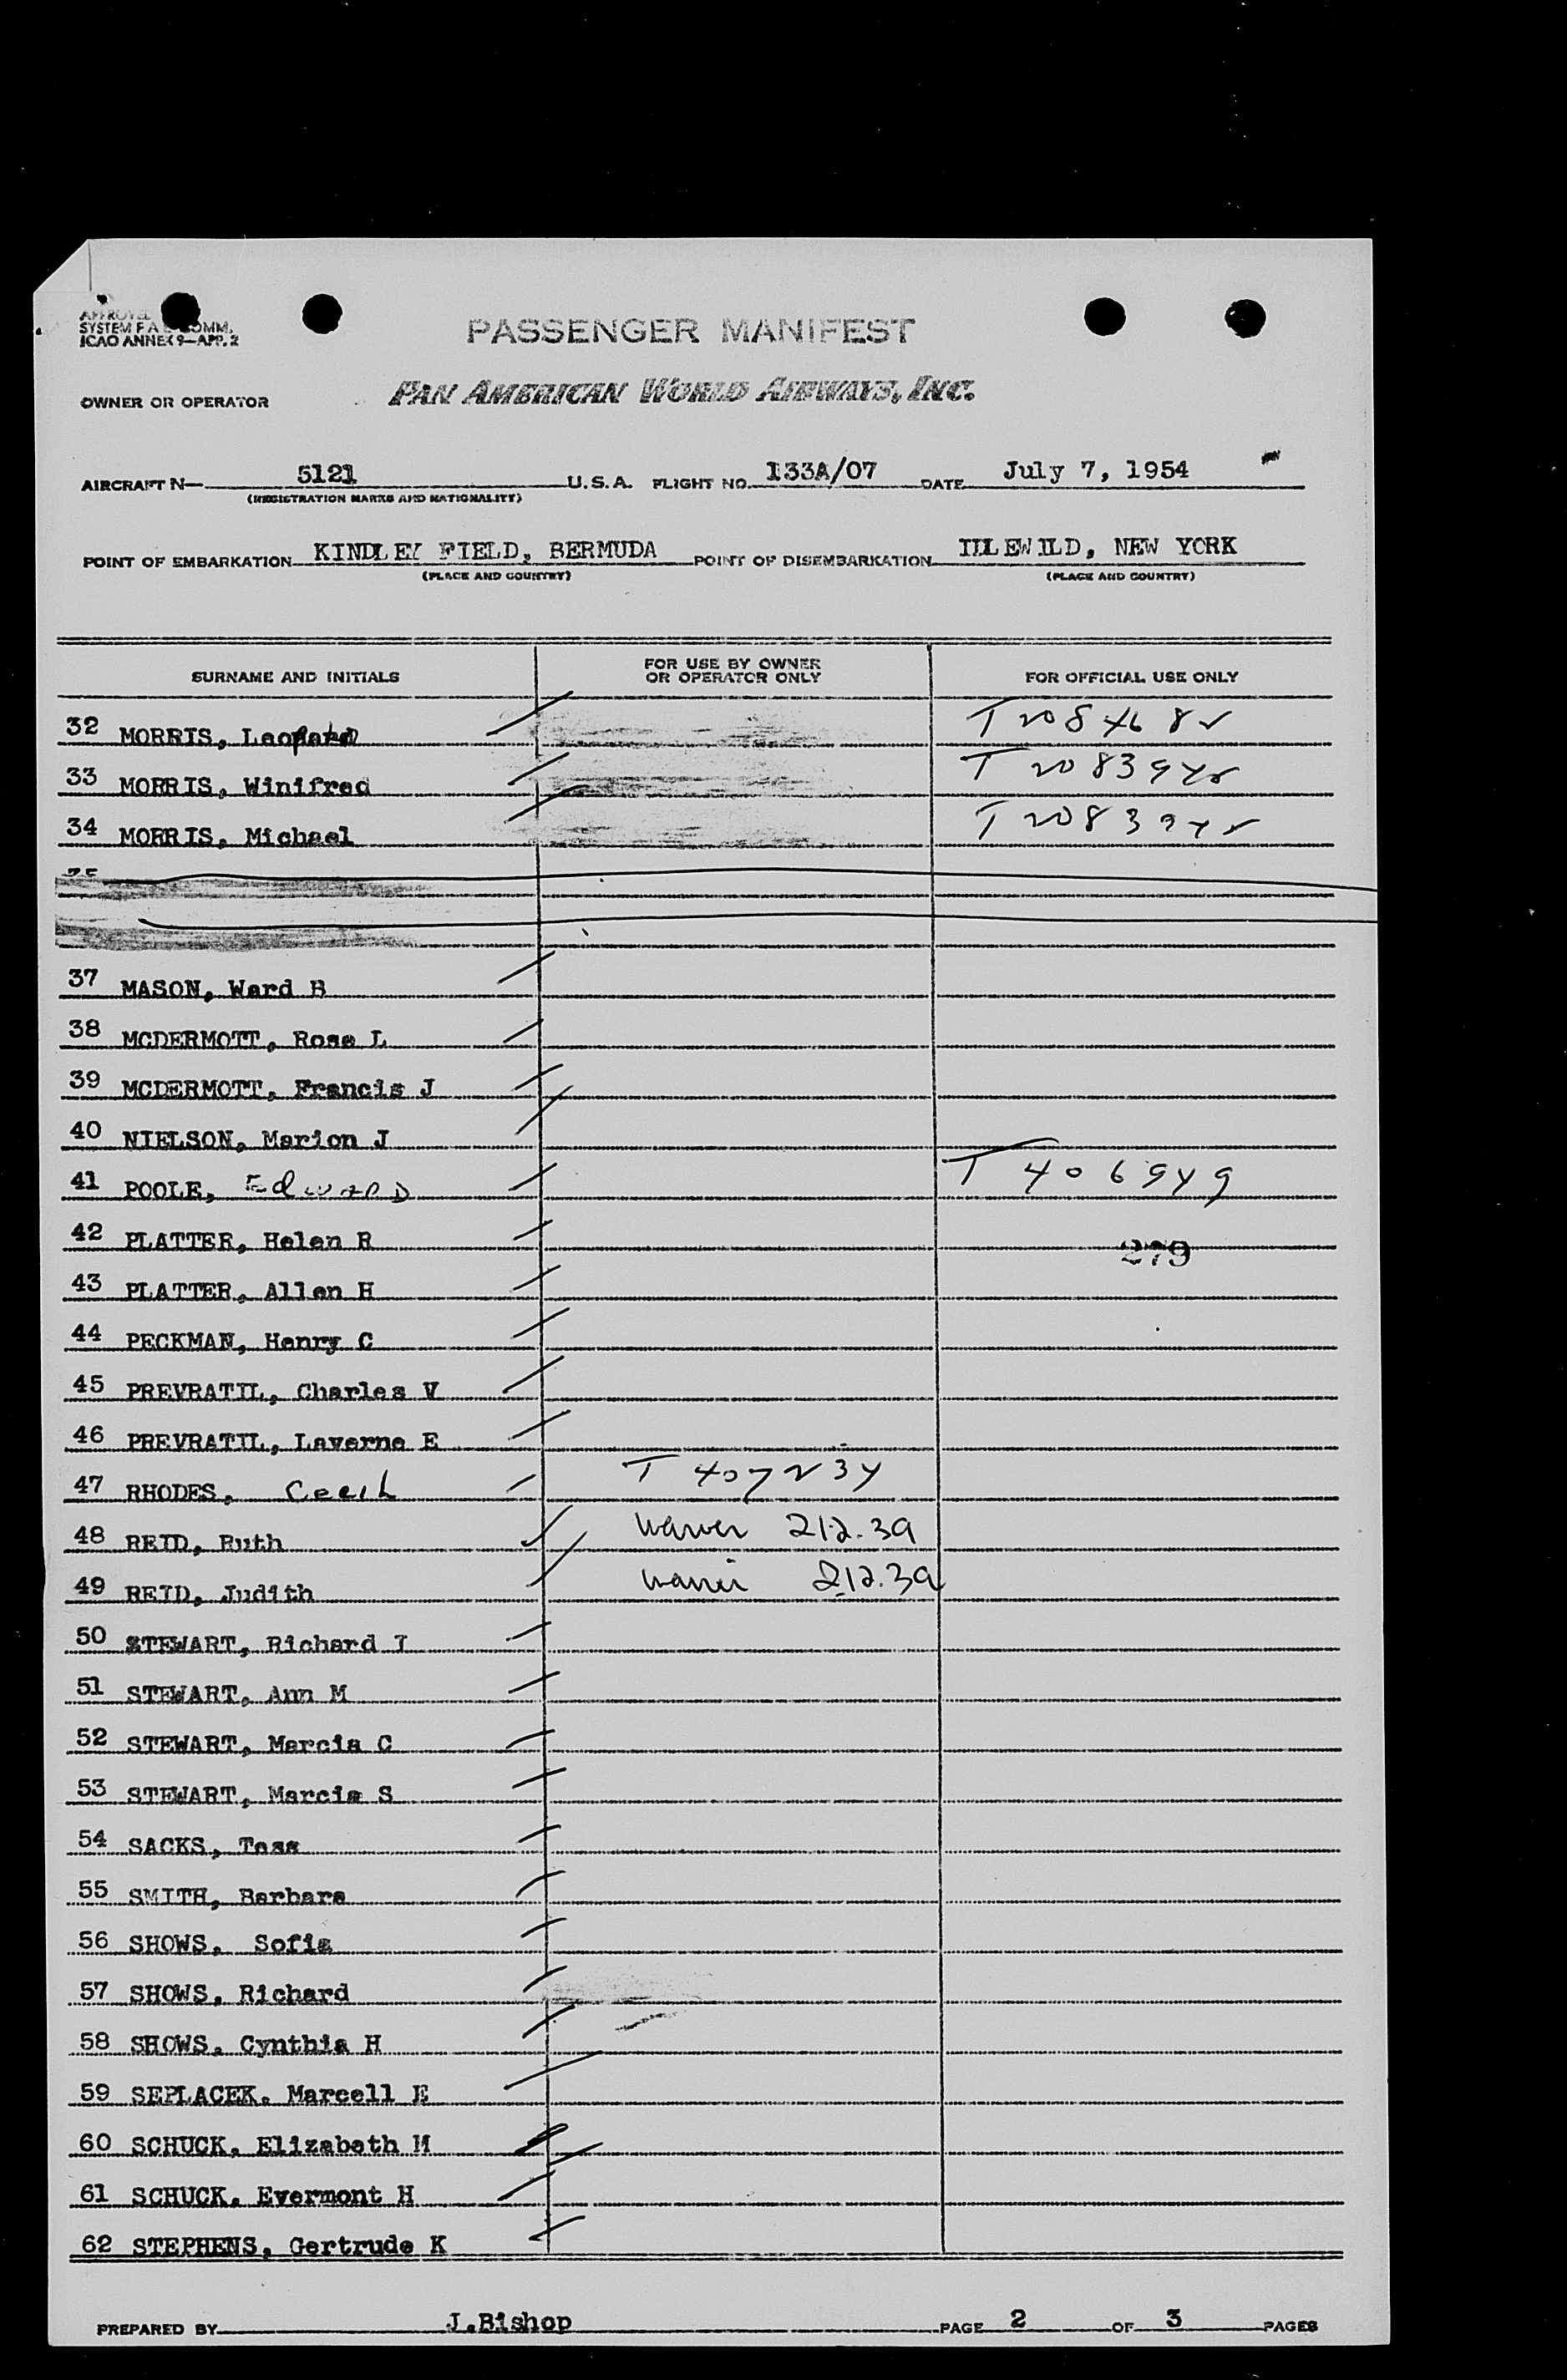 SYSTEM F A COMM.
ICAO ANNEX 9—APP. 2
PASSENGER MANIFEST
OWNER OR OPERATOR PAN AMERICAN WORLD AIRWAYS, INC.
AIRCRAFT N— 5121 U.S.A. FLIGHT NO. 133A/07 DATE July 7, 1954
(REGISTRATION MARKS AND NATIONALITY)
POINT OF EMBARKATION KINDLEY FIELD, BERMUDA POINT OF DISEMBARKATION IDLEWILD, NEW YORK
(PLACE AND COUNTRY) (PLACE AND COUNTRY)
SURNAME AND INITIALS FOR USE BY OWNER OR OPERATOR ONLY FOR OFFICIAL USE ONLY
32 MORRIS,
33 MORRIS, Winifred
34 MORRIS, Michael
35
37 MASON, Ward B
38 MCDERMOTT, Rose L
39 MCDERMOTT, Francis J
40 NIELSON, Marion J
41 POOLE, Edward T 406949
42 PLATTER, Helen R 279
43 PLATTER, Allen H
44 PECKMAN, Henry C
45 PREVRATIL, Charles V
46 PREVRATIL, Laverne E
47 RHODES, Cecil T 407234
48 REID, Ruth waiver 212.3a
49 REID, Judith waiver 212.3a
50 STEWART, Richard I
51 STEWART, Ann M
52 STEWART, Marcia C
53 STEWART, Marcia S
54 SACKS, Tess
55 SMITH, Barbara
56 SHOWS, Sofia
57 SHOWS, Richard
58 SHOWS, Cynthia H
59 SEPLACEK, Marcell E
60 SCHUCK, Elizabeth M
61 SCHUCK, Evermont H
62 STEPHENS, Gertrude K
PREPARED BY J.Bishop PAGE 2 OF 3 PAGES